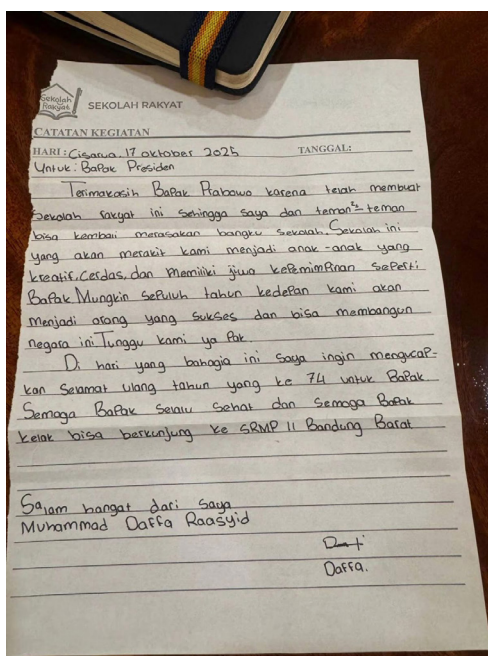 Sekolah
Rakyat
SEKOLAH RAKYAT
CATATAN KEGIATAN
HARI : Cisarua, 17 oktober 2025 TANGGAL:
Untuk : BaPak Presiden
Terimakasih BaPak Prabowo karena telah membuat
Sekolah rakyat ini Sehingga saya dan teman² teman
bisa kembali merasakan bangku sekolah. Sekolah ini
yang akan merakit kami menjadi anak-anak yang
kreatif, Cerdas, dan Memiliki jiwa kePemimPinan SePerti
BaPak. Mungkin sePuluh tahun kedePan kami akan
Menjadi orang yang sukses dan bisa membangun
negara ini Tunggu kami ya Pak.
Di hari yang bahagia ini Saya ingin mengucaP-
kan Selamat ulang tahun yang ke 74 untuk BaPak
Semoga BaPak Selalu Sehat dan Semoga BaPak
kelak bisa berkunjung ke SRMP 11 Bandung Barat
Salam hangat dari Saya
Muhammad Daffa Raasyid
Daffa.